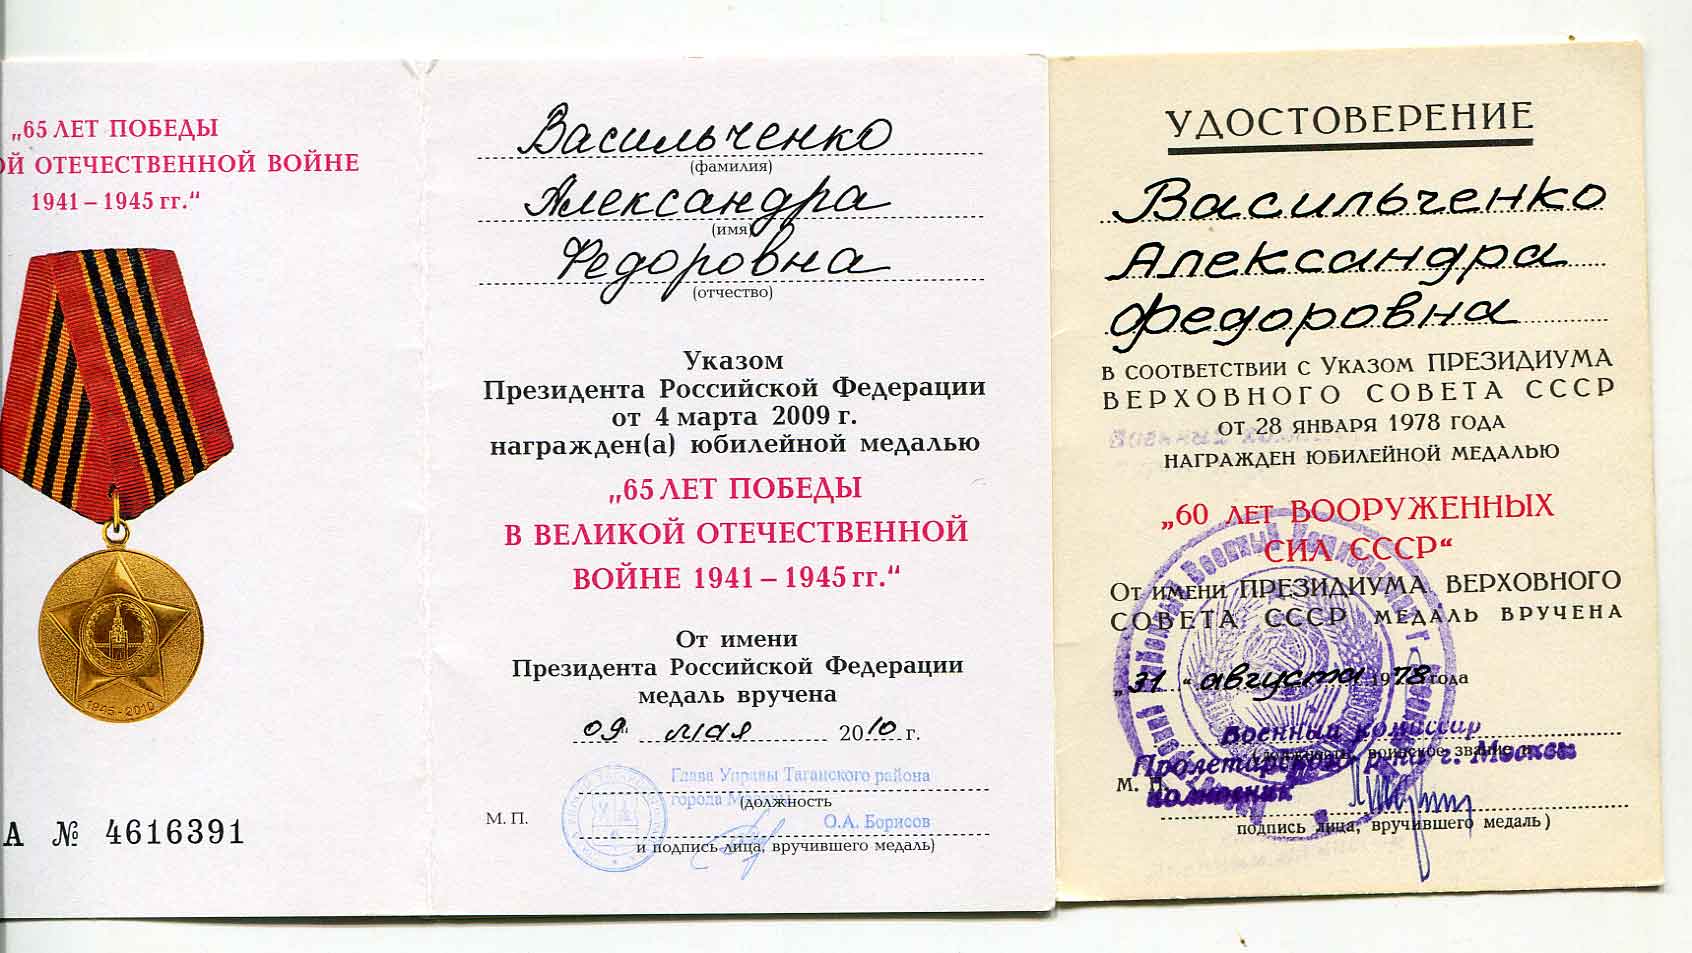 „65 ЛЕТ ПОБЕДЫ
ОЙ ОТЕЧЕСТВЕННОЙ ВОЙНЕ
1941 – 1945 гг.“
1945-2010
А № 4616391
Васильченко
(фамилия)
Александра
(имя)
Федоровна
(отчество)
Указом
Президента Российской Федерации
от 4 марта 2009 г.
награжден(а) юбилейной медалью
„65 ЛЕТ ПОБЕДЫ
В ВЕЛИКОЙ ОТЕЧЕСТВЕННОЙ
ВОЙНЕ 1941 – 1945 гг.“
От имени
Президента Российской Федерации
медаль вручена
09" мая 2010 г.
Глава Управы Таганского района
города Москвы
(должность
М. П.
О.А. Борисов
и подпись лица, вручившего медаль)
УДОСТОВЕРЕНИЕ
Васильченко
Александра
Федоровна
в соответствии с Указом ПРЕЗИДИУМА
ВЕРХОВНОГО СОВЕТА СССР
от 28 января 1978 года
награжден юбилейной медалью
„60 лет ВООРУЖЕННЫХ
СИЛ СССР“
От имени ПРЕЗИДИУМА ВЕРХОВНОГО
СОВЕТА СССР медаль вручена
„31“ августа 1978 года
Военный комиссар
(должность, воинское звание и
Пролетарского р-на г. Москвы
М. П.
полковник
подпись лица, вручившего медаль)